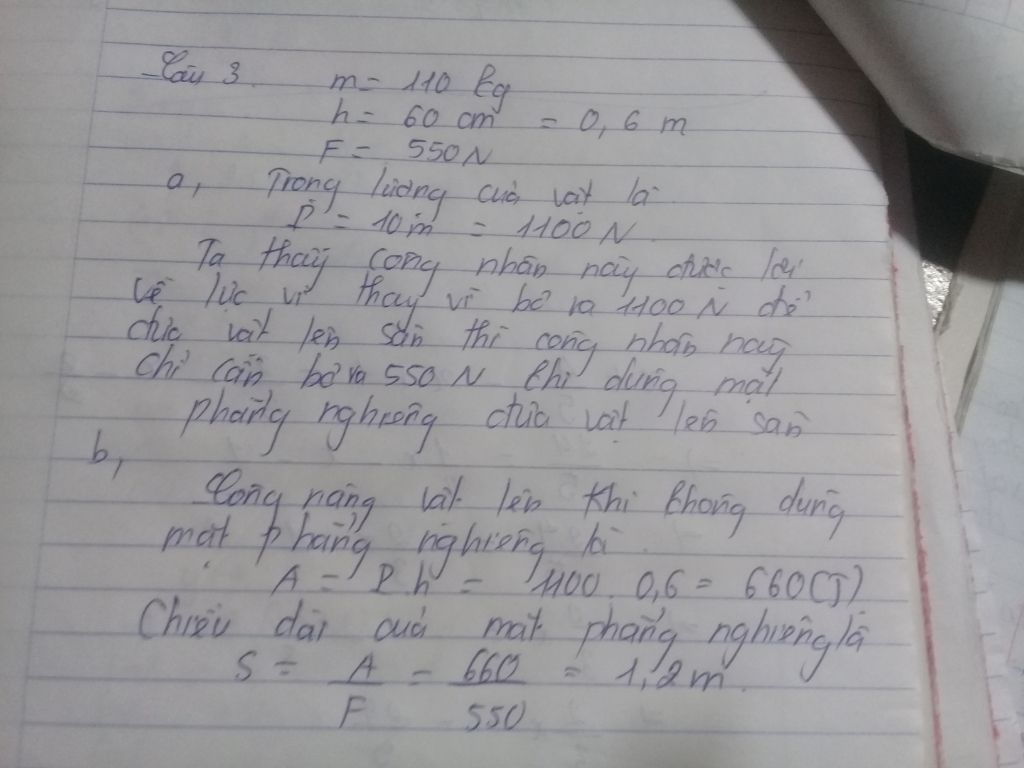 Câu 3. m = 110 kg
h = 60 cm = 0,6 m
F = 550N
a, Trọng lượng của vật là
P = 10m = 1100 N.
Ta thấy công nhân này được lợi
về lực vì thay vì bỏ ra 1100 N để
đưa vật lên sàn thì công nhân này
Chỉ cần bỏ ra 550 N khi dùng mặt
phẳng nghiêng đưa vật lên sàn
b,
Công nâng vật lên khi không dùng
mặt phẳng nghiêng là.
A = P.h = 1100. 0,6 = 660(J)
Chiều dài của mặt phẳng nghiêng là
S = A/F = 660/550 = 1,2m.